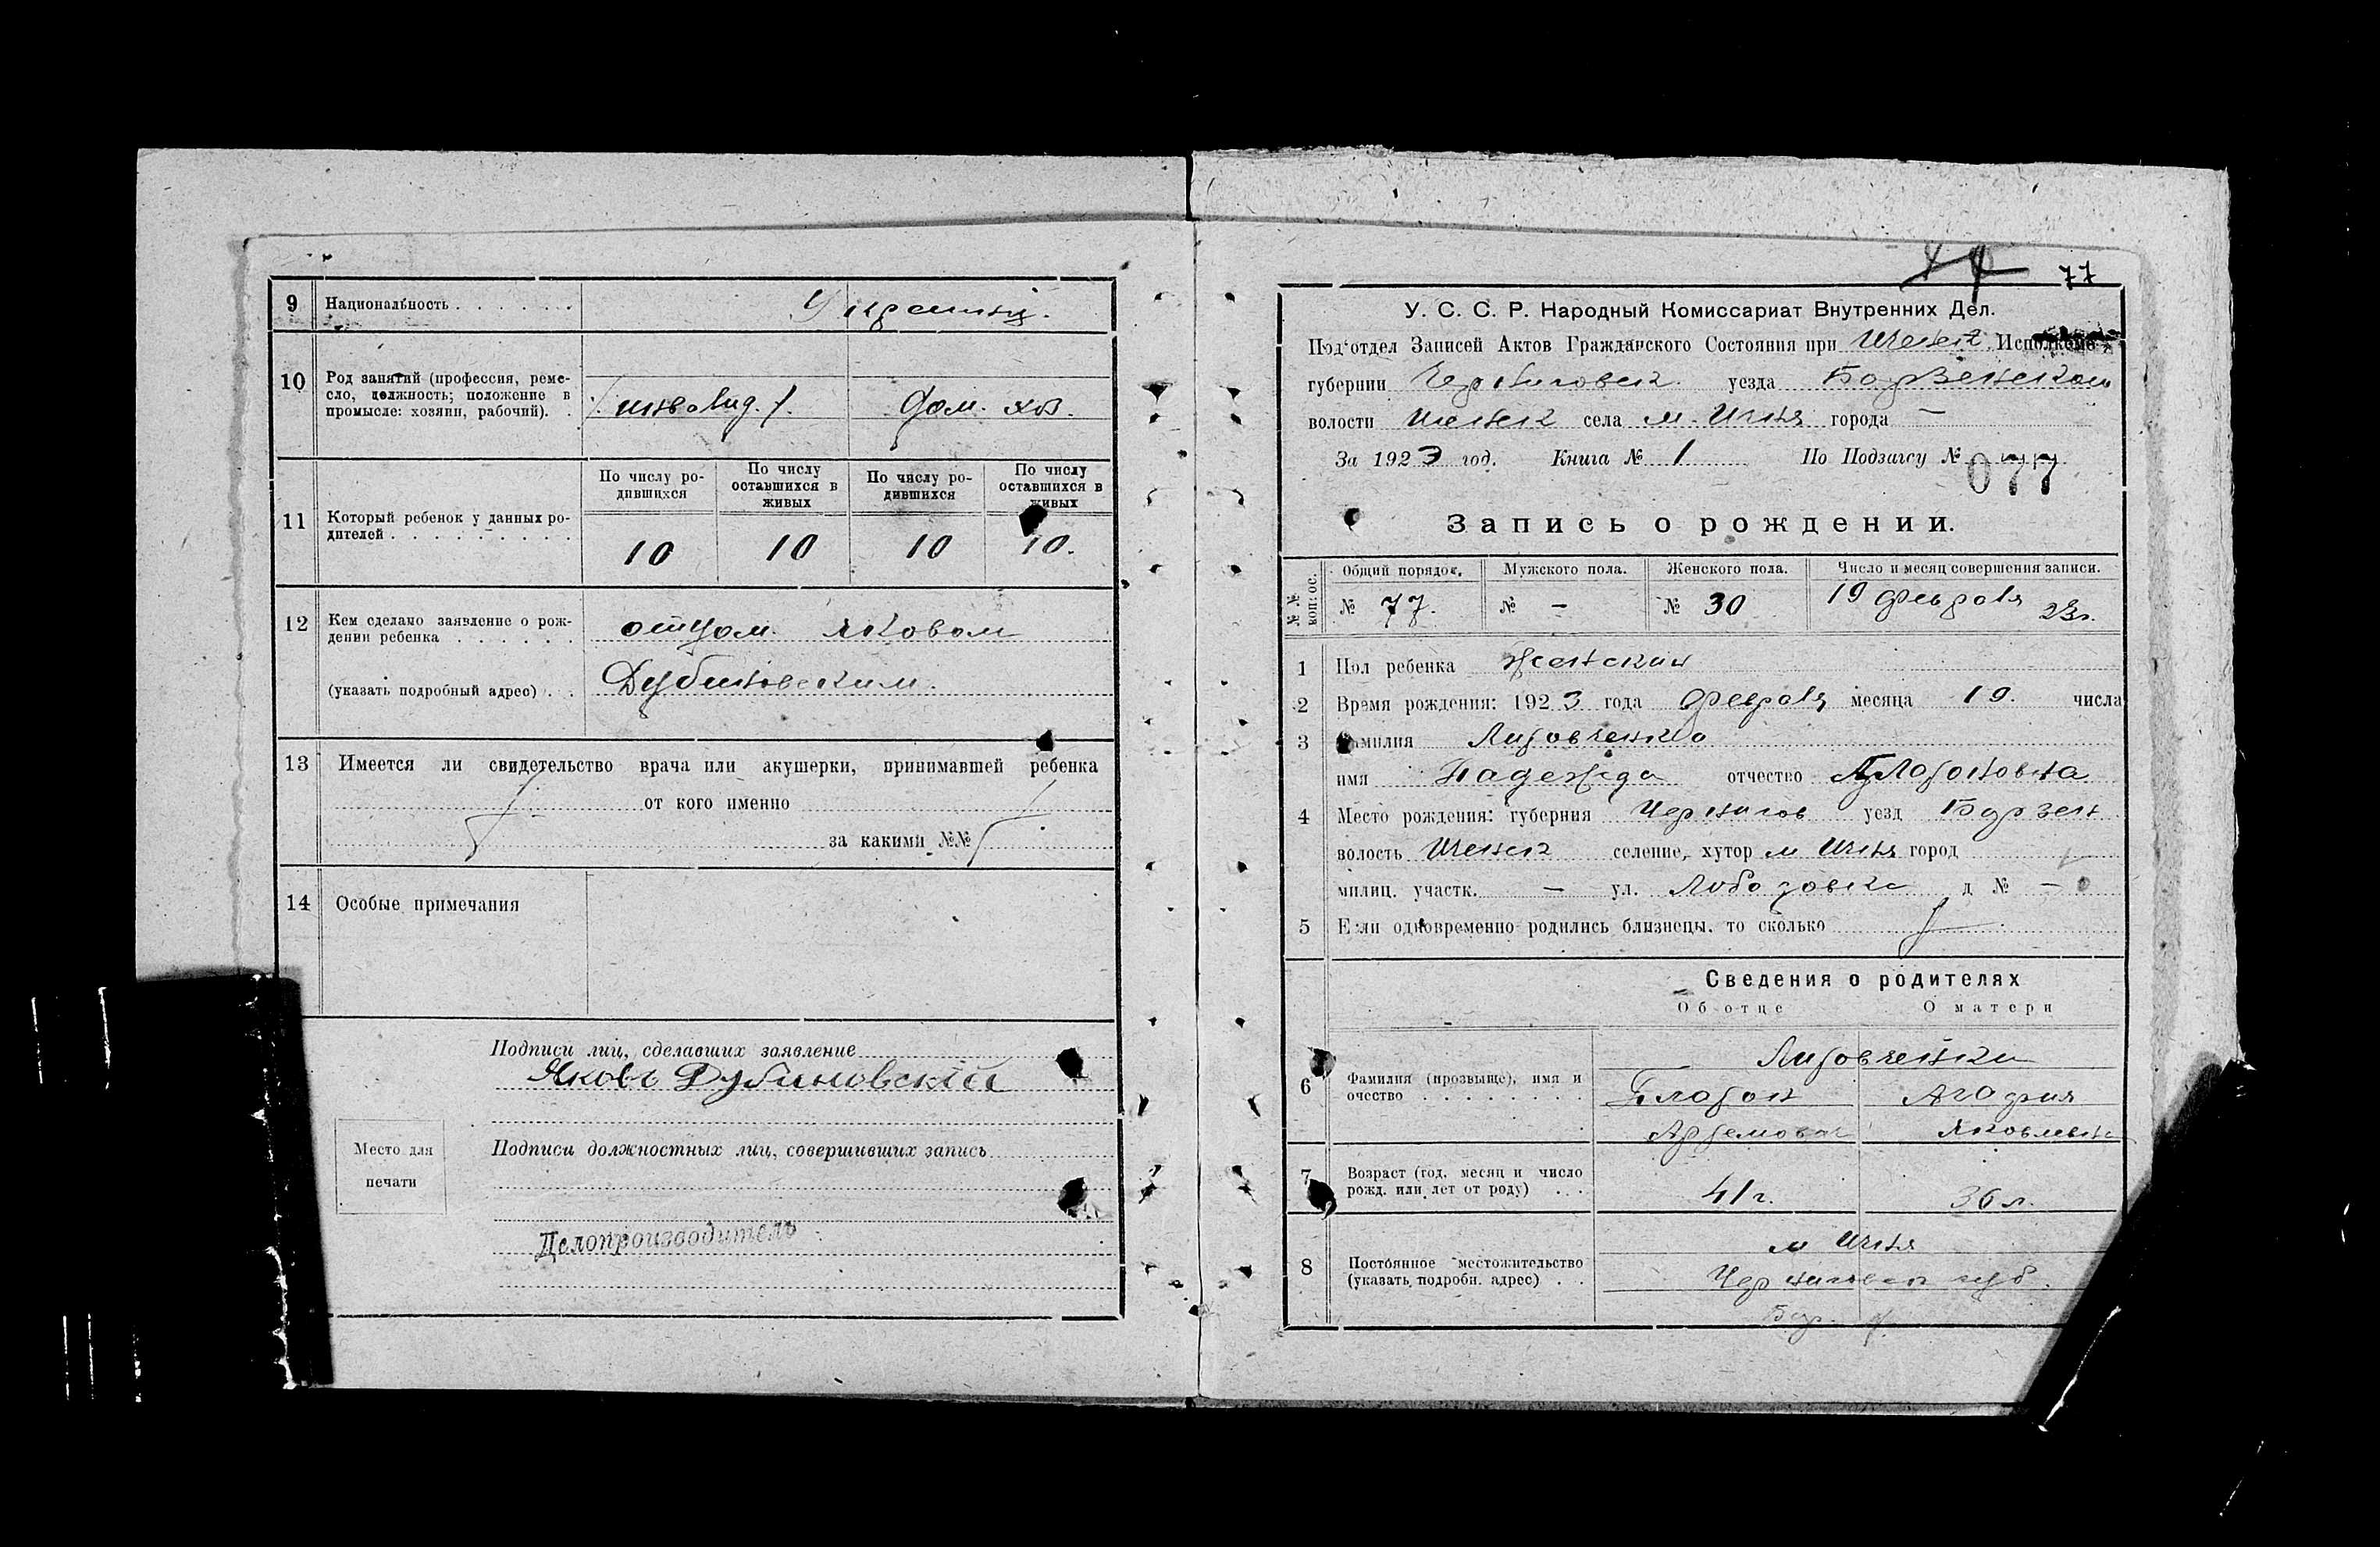 9 Национальность . . . . . . . Украинц.
10 Род занятий (профессия, реме-
сло, должность; положение в
промысле: хозяин, рабочий). .
(инвалид.) Дом. хоз.
11 Который ребенок у данных ро-
дителей . . . . . . . . . .
По числу ро-
дившихся
По числу
оставшихся в
живых
По числу ро-
дившихся
По числу
оставшихся в
живых
10 10 10 10.
12 Кем сделано заявление о рож-
дении ребенка . . . . . . отцом. Яковом
(указать подробный адрес) . . Дубиновским.
13 Имеется ли свидетельство врача или акушерки, принимавшей ребенка
от кого именно
за какими №№
14 Особые примечания
Подписи лиц, сделавших заявление
Яковъ Дубиновскій
Место для
печати
Подписи должностных лиц, совершивших запись
Делопроизводитель
77
У. С. С. Р. Народный Комиссариат Внутренних Дел.
Под'отдел Записей Актов Гражданского Состояния при Иченск Исполкоме
губернии Черниговск. уезда Борзенском
волости Иченск села м. Ичня города —
За 1923 год. Книга № 1 По Подзагсу № 077
Запись о рождении.
№№ вопрос.
Общий порядок. Мужского пола. Женского пола. Число и месяц совершения записи.
№ 77. № — № 30 19 февраля 23г.
1 Пол ребенка женский
2 Время рождения: 1923 года февраля месяца 19. числа
3 Фамилия Литовченко
имя Надежда отчество Платоновна
4 Место рождения: губерния Чернигов уезд Борзен
волость Иченск селение, хутор м Ичня город
милиц. участк. — ул. д № —
5 Если одновременно родились близнецы, то сколько
Сведения о родителях
Об отце О матери
6 Фамилия (прозвище), имя и
очество . . . . . . . .
Литовченки
Платон Агафия
Артемович Яковлевна
7 Возраст (год, месяц и число
рожд. или лет от роду) . . .
41 г. 36 л.
8 Постоянное местожительство
(указать подробн. адрес) . .
м Ичня
Черниговск губ.
Бор. у.